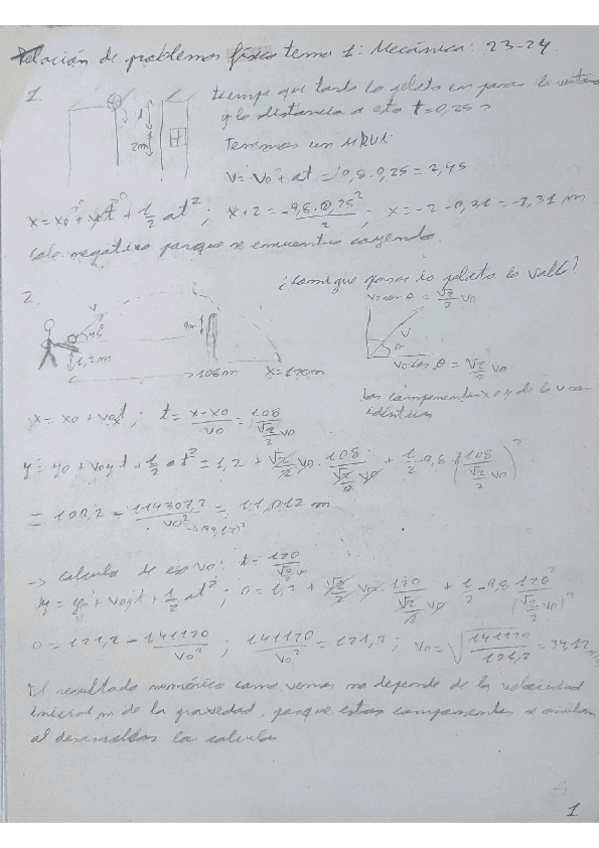 Relación de problemas física tema 1: Mecánica: 23-24
1.
tiempo que tarda la pelota en pasar la ventana
y la distancia a esta t=0,25 s
d
2m
Tenemos un MRUA:
v = v0 + at = 9,8 · 0,25 = 2,45
x = x0 + v0t + 1/2 at²; x+2 = -9,8·0,25²/2; x = -2 - 0,31 = -2,31 m
Sale negativo porque se encuentra cayendo.
2.
¿Consigue pasar la pelota la valla?
v0 sen θ = √2/2 v0
v
1,2m
108m
x=120m
v
θ
v0 cos θ = √2/2 v0
Las componentes x e y de la v son
idénticas
x = x0 + v0xt; t = x-x0/v0 = 108/(√2/2 v0)
y = y0 + v0yt + 1/2 at² = 1,2 + √2/2 v0 · 108/(√2/2 v0) + 1/2 -9,8 (108/(√2/2 v0))²
= 109,2 - 114307,2/v0² = 11,012 m
-> Calculo de v0: t = 120/(√2/2 v0)
y = y0 + v0yt + 1/2 at²; 0 = 1,2 + √2/2 v0 · 120/(√2/2 v0) + 1/2 -9,8 120²/(√2/2 v0)²
0 = 121,2 - 141120/v0²; 141120/v0² = 121,2; v0 = √(141120/121,2) = 34,12 m/s
El resultado numérico como vemos no depende de la velocidad
inicial ni de la gravedad, porque estas componentes se anulan
al desarrollar el calculo
1